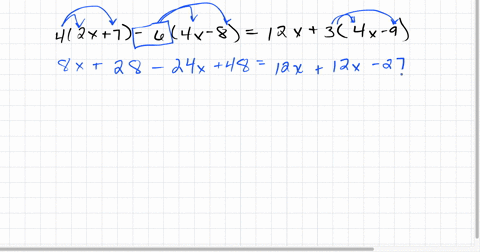 4(2x+7) - 6(4x-8) = 12x + 3(4x-9)
8x + 28 - 24x + 48 = 12x + 12x - 27